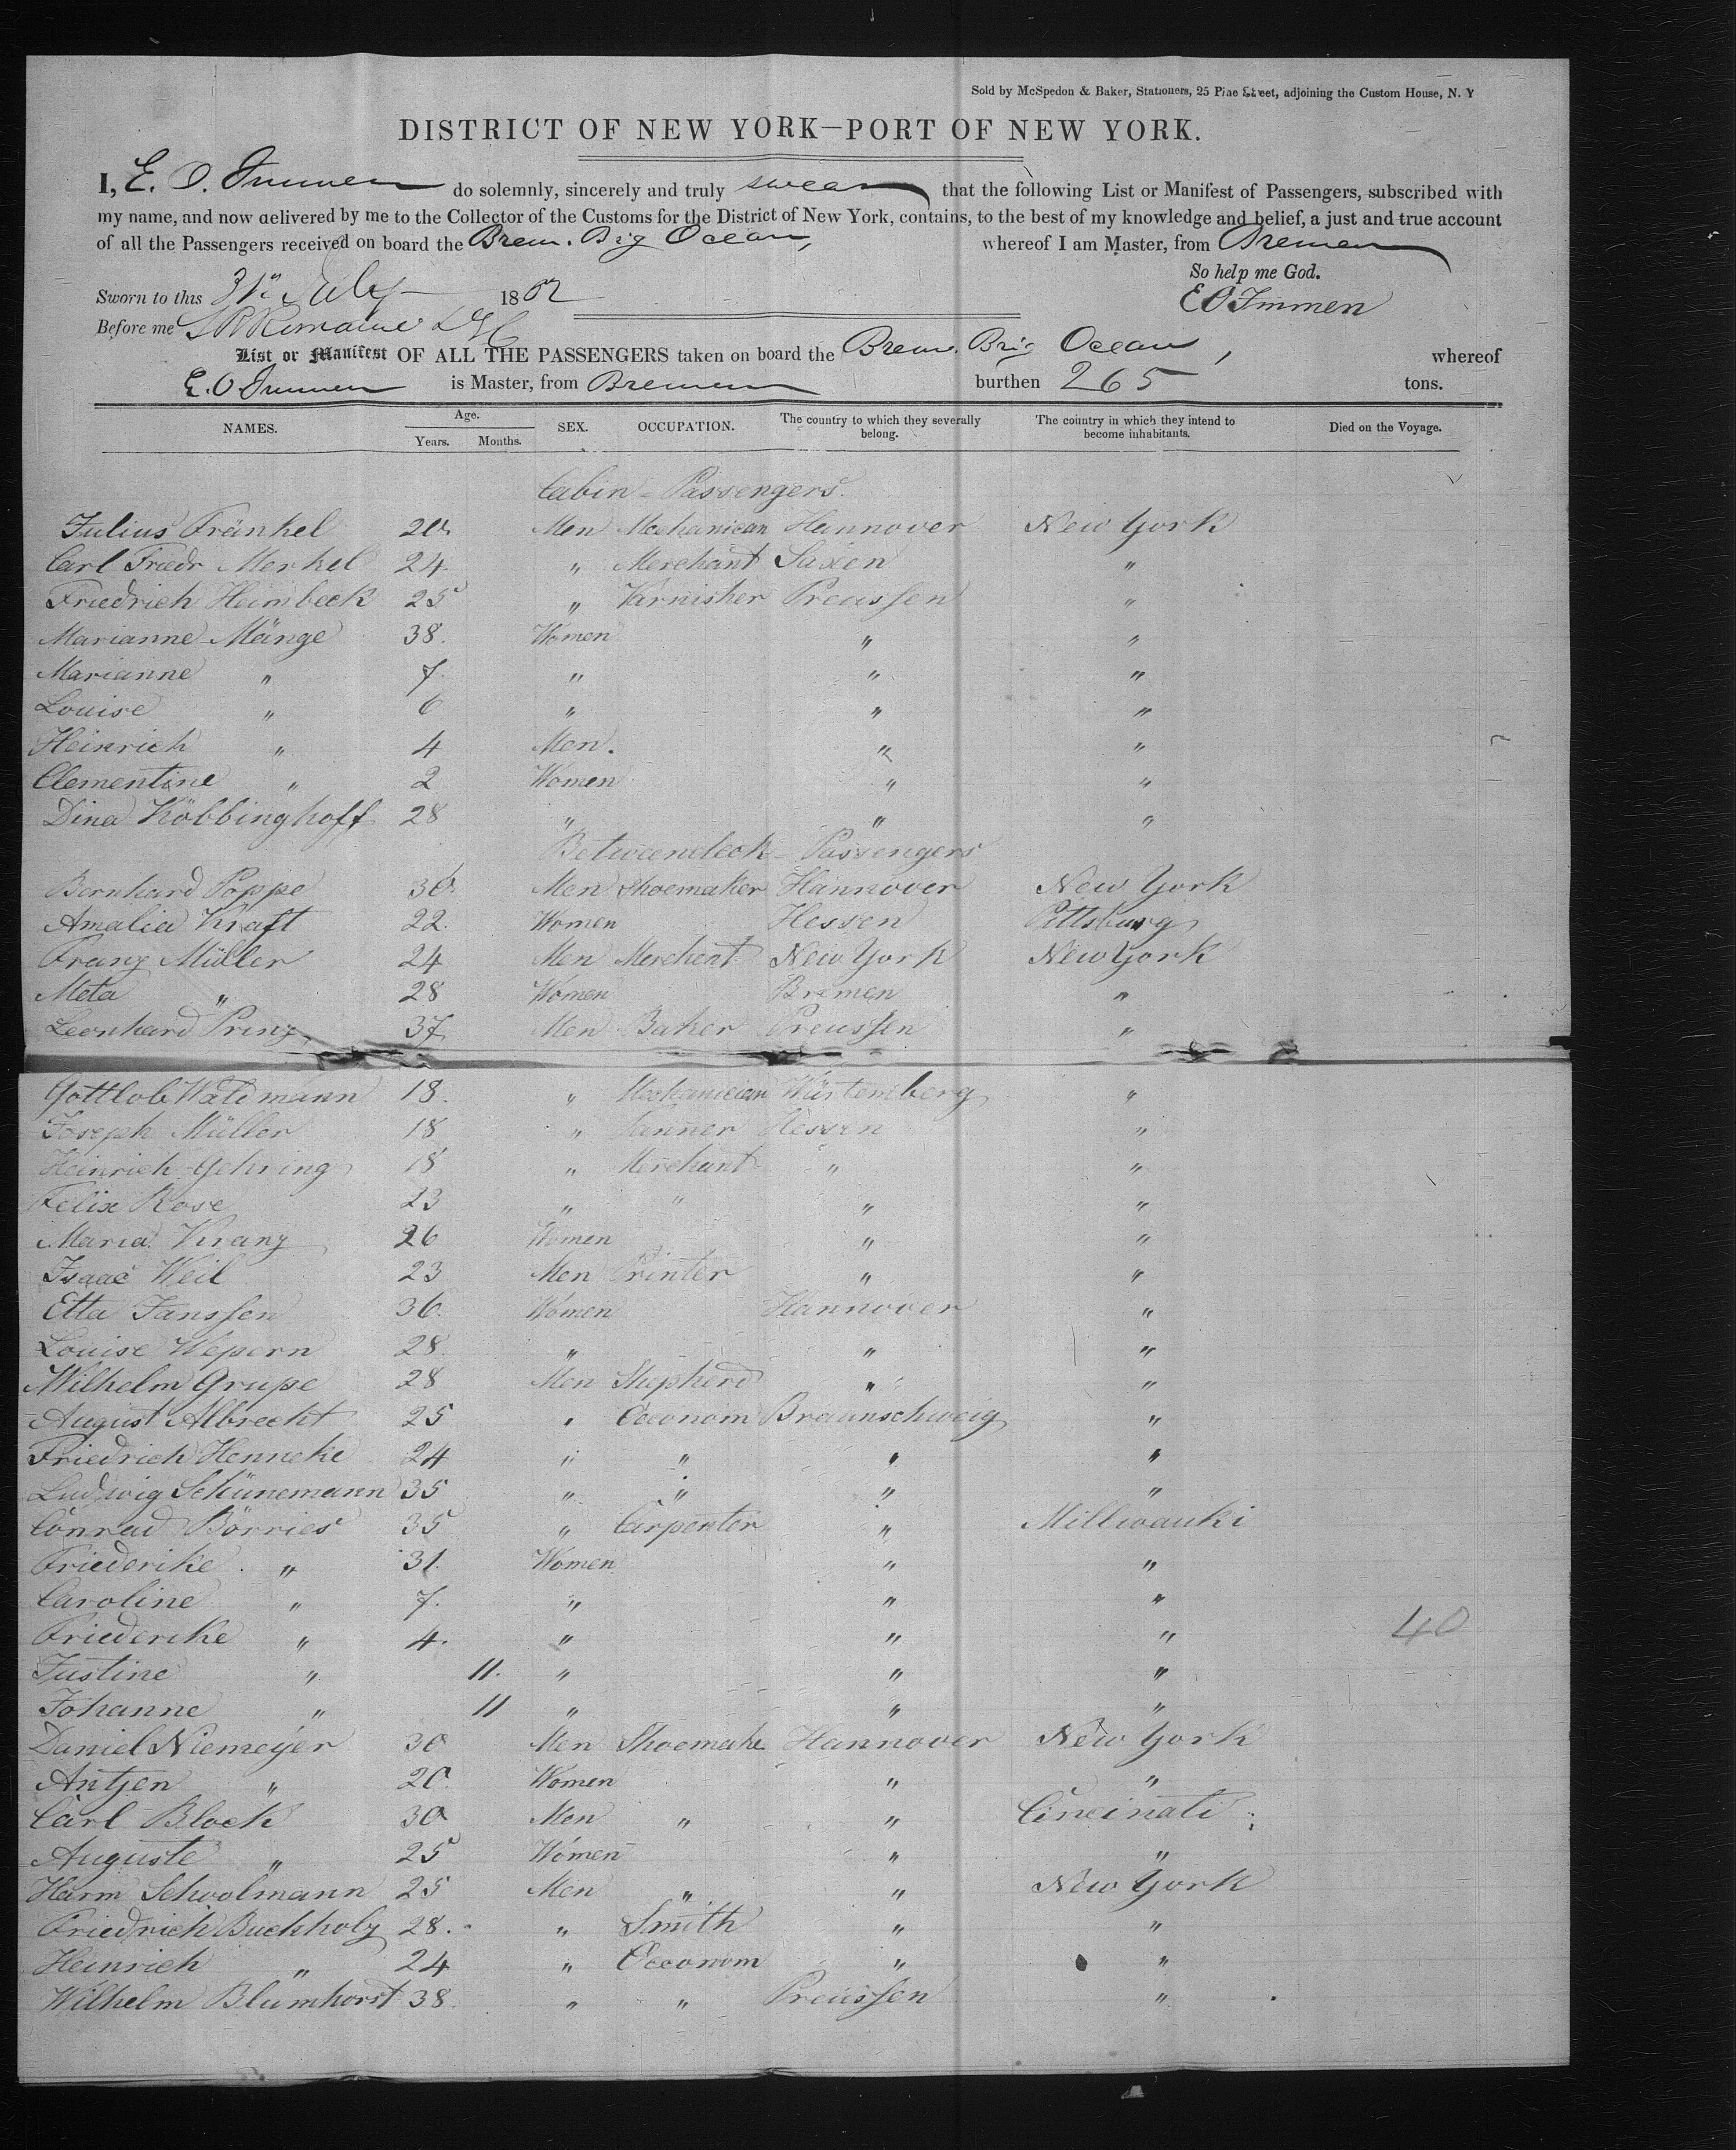 Sold by McSpedon & Baker, Stationers, 25 Pine Street, adjoining the Custom House, N. Y
DISTRICT OF NEW YORK—PORT OF NEW YORK.
I, E. O. Immen do solemnly, sincerely and truly swear that the following List or Manifest of Passengers, subscribed with
my name, and now delivered by me to the Collector of the Customs for the District of New York, contains, to the best of my knowledge and belief, a just and true account
of all the Passengers received on board the Brem. Brig Ocean, whereof I am Master, from Bremen
So help me God.
Sworn to this 31st July 1852
E O Immen
Before me
List or Manifest OF ALL THE PASSENGERS taken on board the Brem. Brig Ocean, whereof
E. O Immen is Master, from Bremen burthen 265 tons.
NAMES. Age. Years. Months. SEX. OCCUPATION. The country to which they severally belong. The country in which they intend to become inhabitants. Died on the Voyage.
Cabin-Passengers.
Julius Fränkel 20 Men Mechanican Hannover New York
Carl Friedr Merkel 24 " Merchant Saxen "
Friedrich Heimbeck 25 " Varnisher Preussen "
Marianne Mänge 38. Women " "
Marianne " 7. " " "
Louise " 6 " " "
Heinrich " 4 Men. " "
Clementine " 2 Women " "
Dina Köbbinghoff 28 " " "
Betweendeck-Passengers
Bernhard Poppe 30. Men Shoemaker Hannover New York
Amalia Kraft 22. Women Hessen Pittsburg
Franz Müller 24 Men Merchent New York New York
Meta " 28 Women Bremen "
Leonhard Prinz 37 Men Baker Preussen "
Gottlob Waidmann 18. " Mechanican Würtemberg "
Joseph Müller 18 " Tanner Hessen "
Heinrich Gehring 18 " Merchant " "
Felix Rose 23 " " " "
Maria Kranz 26 Women " "
Isaac Weil 23 Men Printer " "
Etta Janssen 36. Women Hannover "
Louise Wepern 28. " " "
Wilhelm Grupe 28 Men Shepherd " "
August Albrecht 25 " Oeconom Braunschweig "
Friedrich Henneke 24 " " " "
Ludwig Schünemann 35 " " " "
Conrad Börries 35 " Carpenter " Millwauki
Friederike " 31. Women " "
Caroline " 7. " " "
Friederike " 4. " " "
40
Justine " 11. " " "
Johanne " 11 " " "
Daniel Niemeijer 30 Men Shoemake Hannover New York
Antjen " 20. Women " "
Carl Block 30 Men " " Cincinati
Auguste " 25 Women " "
Harm Schoolmann 25 Men " " New York
Friedrich Buchholz 28. " Smith " "
Heinrich " 24 " Oeconom " "
Wilhelm Blumhorst 38. " " Preussen "